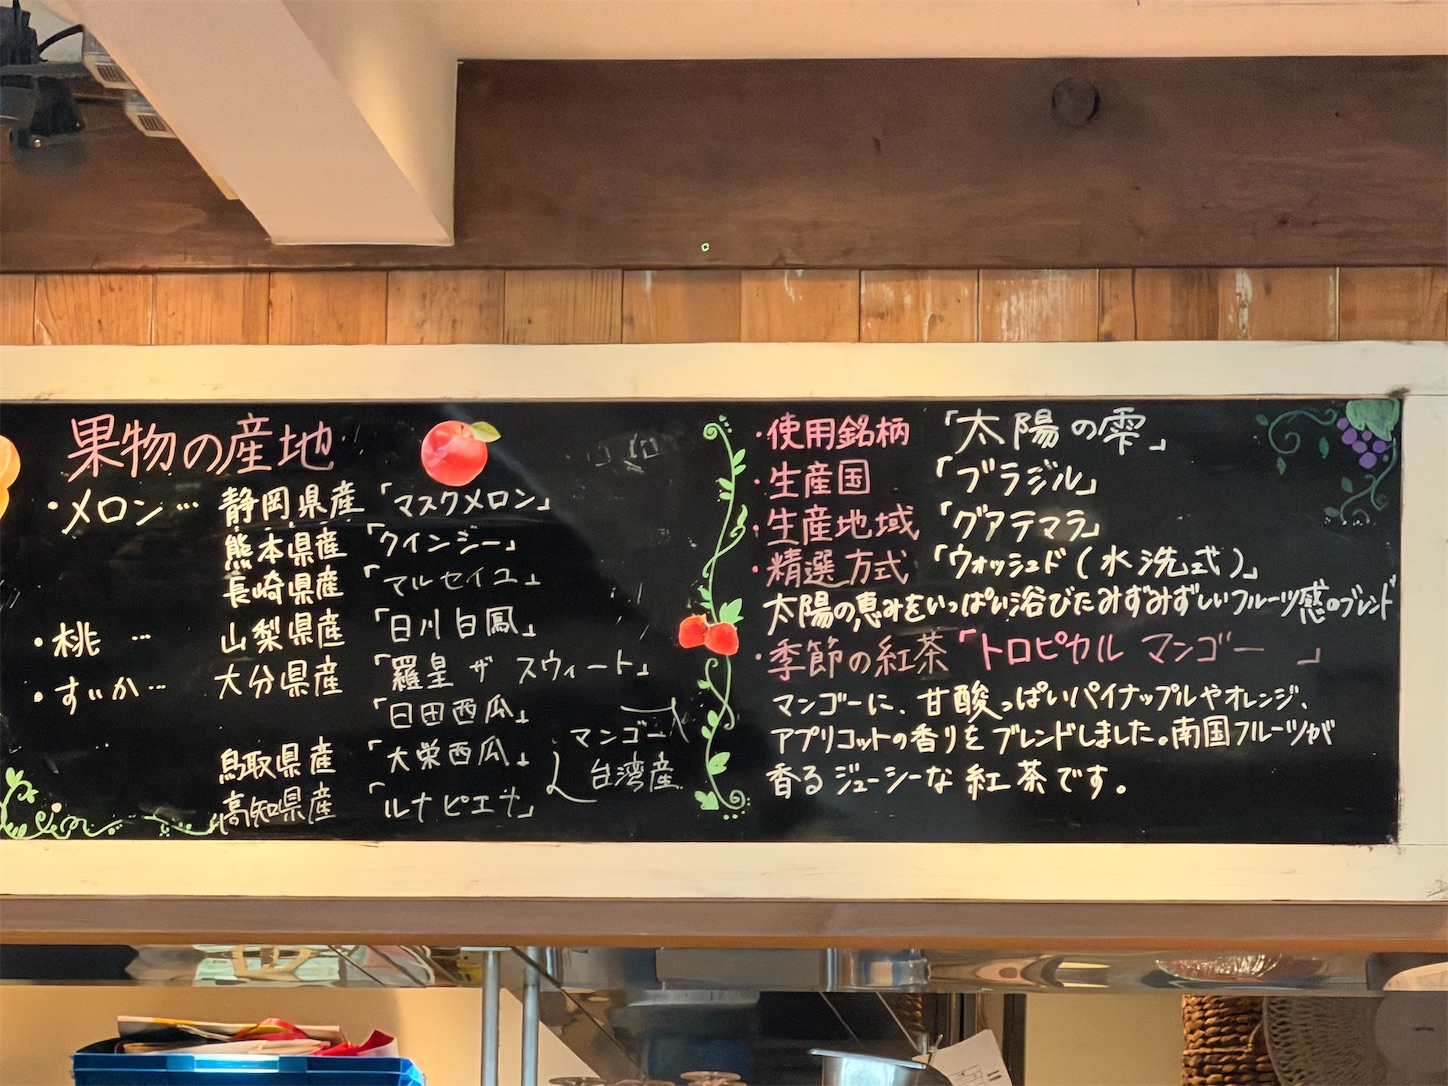 果物の産地
・メロン… 静岡県産「マスクメロン」
熊本県産「クインシー」
長崎県産「マルセイユ」
・桃 … 山梨県産「日川白鳳」
・すいか… 大分県産「羅皇 ザ スウィート」
「日田西瓜」
鳥取県産「大栄西瓜」
高知県産「ルナピエナ」
マンゴー
台湾産
・使用銘柄 「太陽の雫」
・生産国 「ブラジル」
・生産地域 「グアテマラ」
・精選方式 「ウォッシュド(水洗式)」
太陽の恵みをいっぱい浴びたみずみずしいフルーツ感のブレンド
・季節の紅茶「トロピカル マンゴー 」
マンゴーに、甘酸っぱいパイナップルやオレンジ、
アプリコットの香りをブレンドしました。南国フルーツが
香るジューシーな紅茶です。